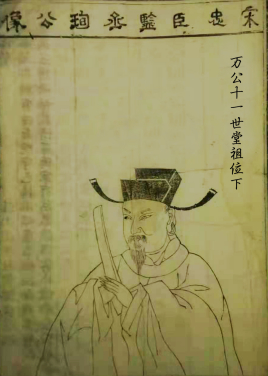 宋忠臣監丞珣公像
万公十一世堂祖位下